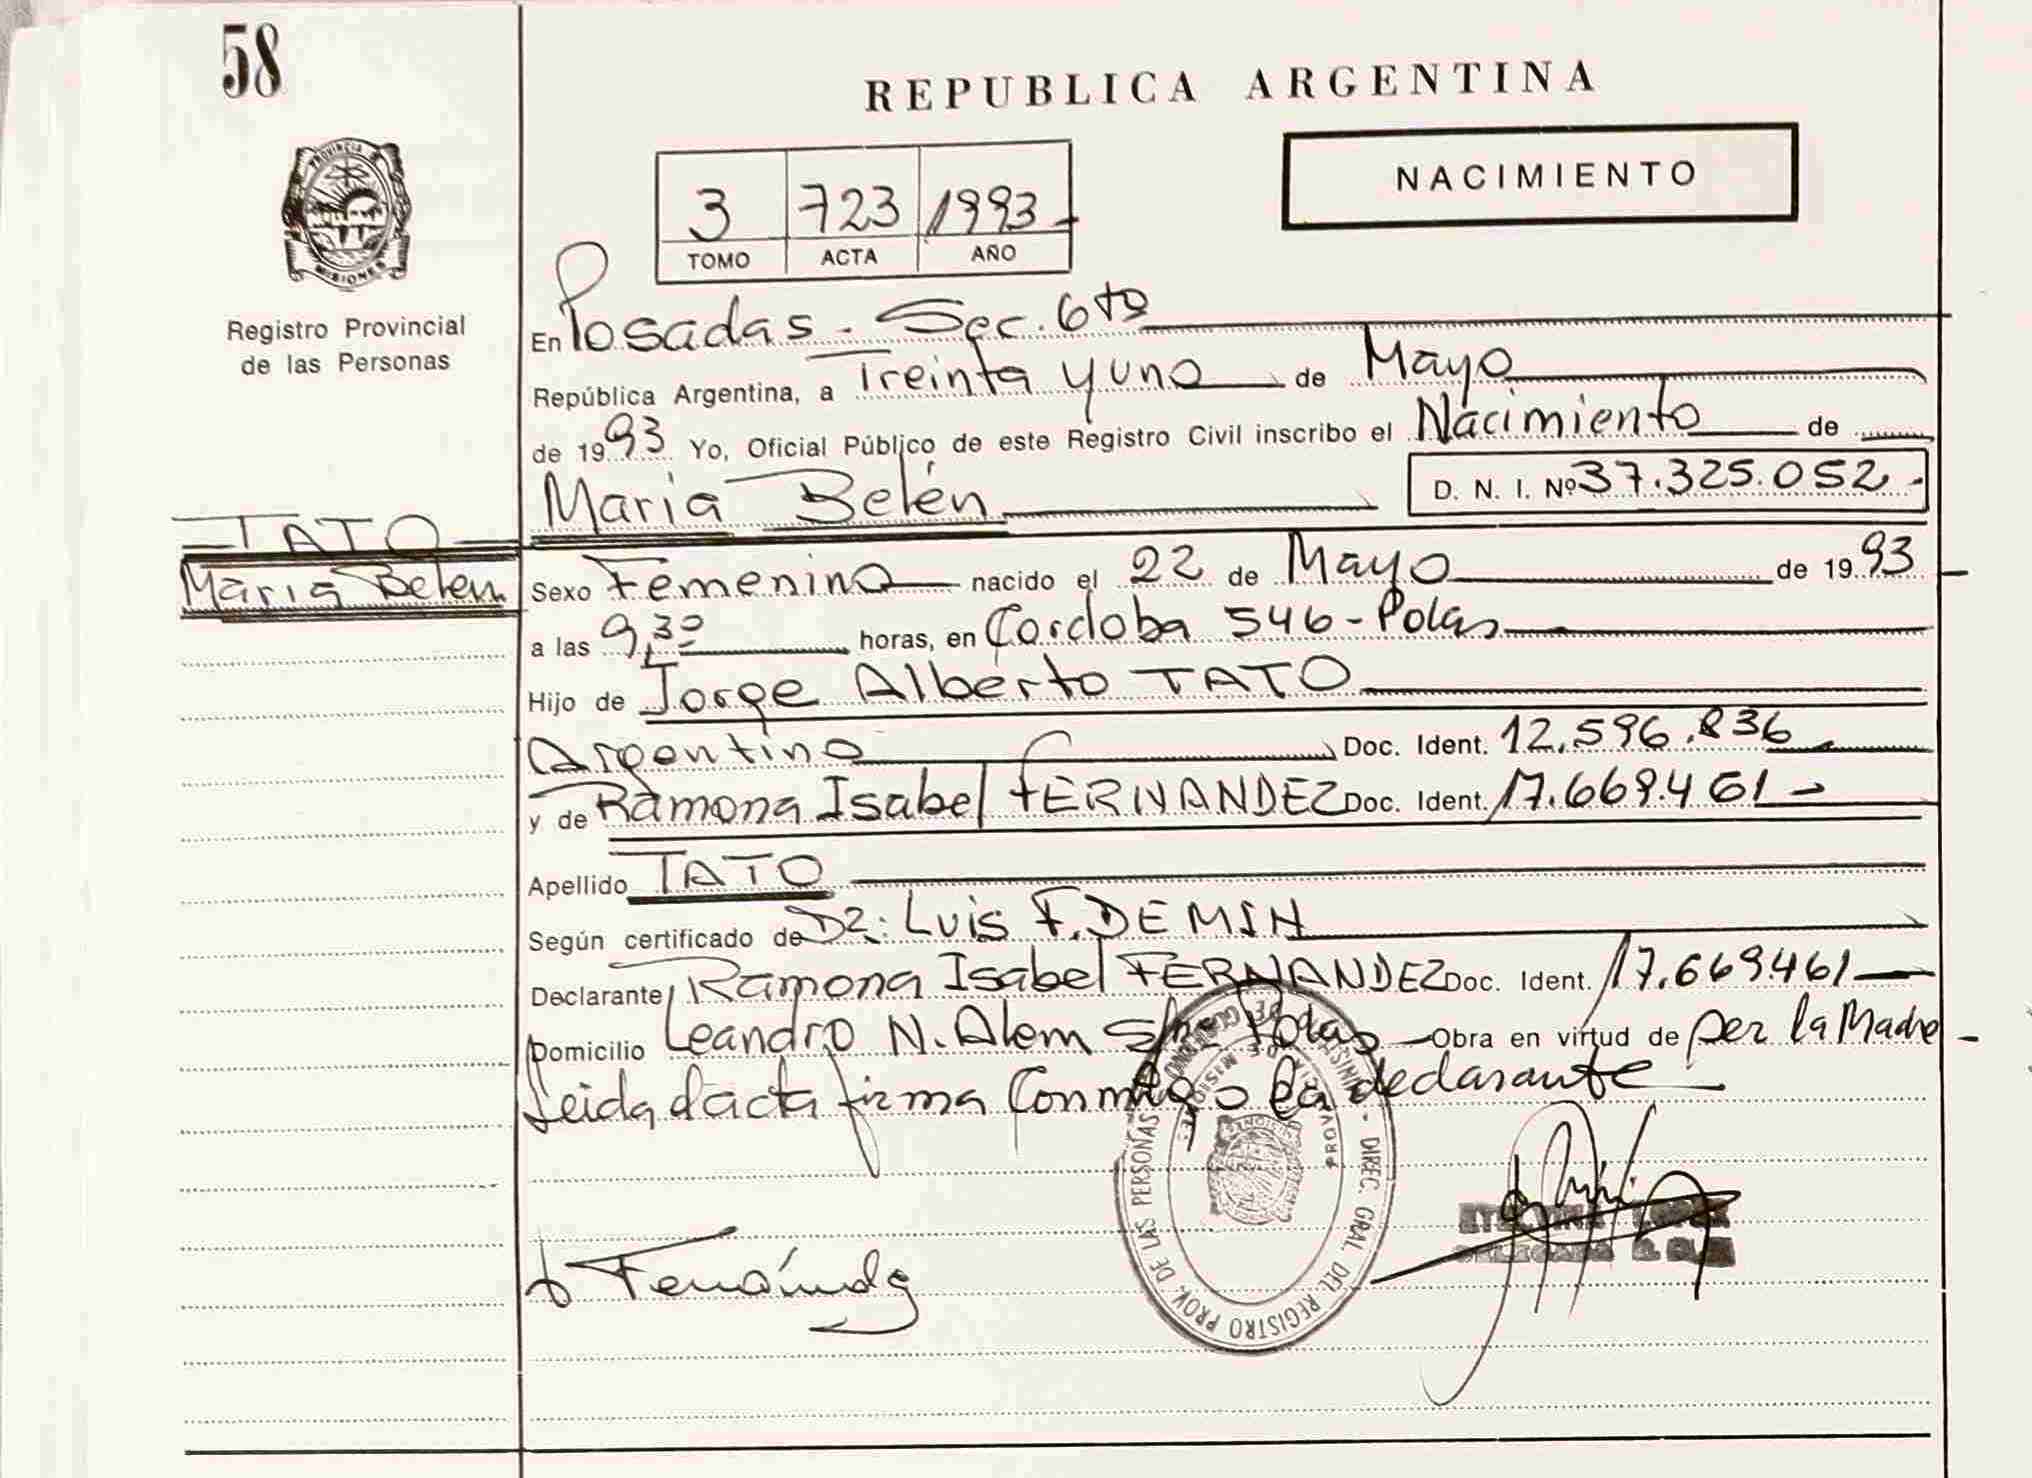 58
REPUBLICA ARGENTINA
NACIMIENTO
3 723 1993
TOMO ACTA AÑO
PROVINCIA DE
MISIONES
Registro Provincial
de las Personas
En Posadas - Sec. 6ta
República Argentina, a Treinta y uno de Mayo
de 1993 Yo, Oficial Público de este Registro Civil inscribo el Nacimiento de
Maria Belén D. N. I. Nº 37.325.052
TATO
Maria Belen
Sexo Femenino nacido el 22 de Mayo de 1993
a las 9,30 horas, en Cordoba 546 - Pdas
Hijo de Jorge Alberto TATO
Argentino Doc. Ident. 12.596.836
y de Ramona Isabel FERNANDEZ Doc. Ident. 17.669.461
Apellido TATO
Según certificado de Dr: Luis F. DEMIN
Declarante Ramona Isabel FERNANDEZ Doc. Ident. 17.669.461
Domicilio Leandro N. Alem S/nº Pdas Obra en virtud de ser la Madre
Leida el acta firma conmigo la declarante
DIREC. GRAL. DEL REGISTRO PROV. DE LAS PERSONAS
PROVINCIA DE MISIONES